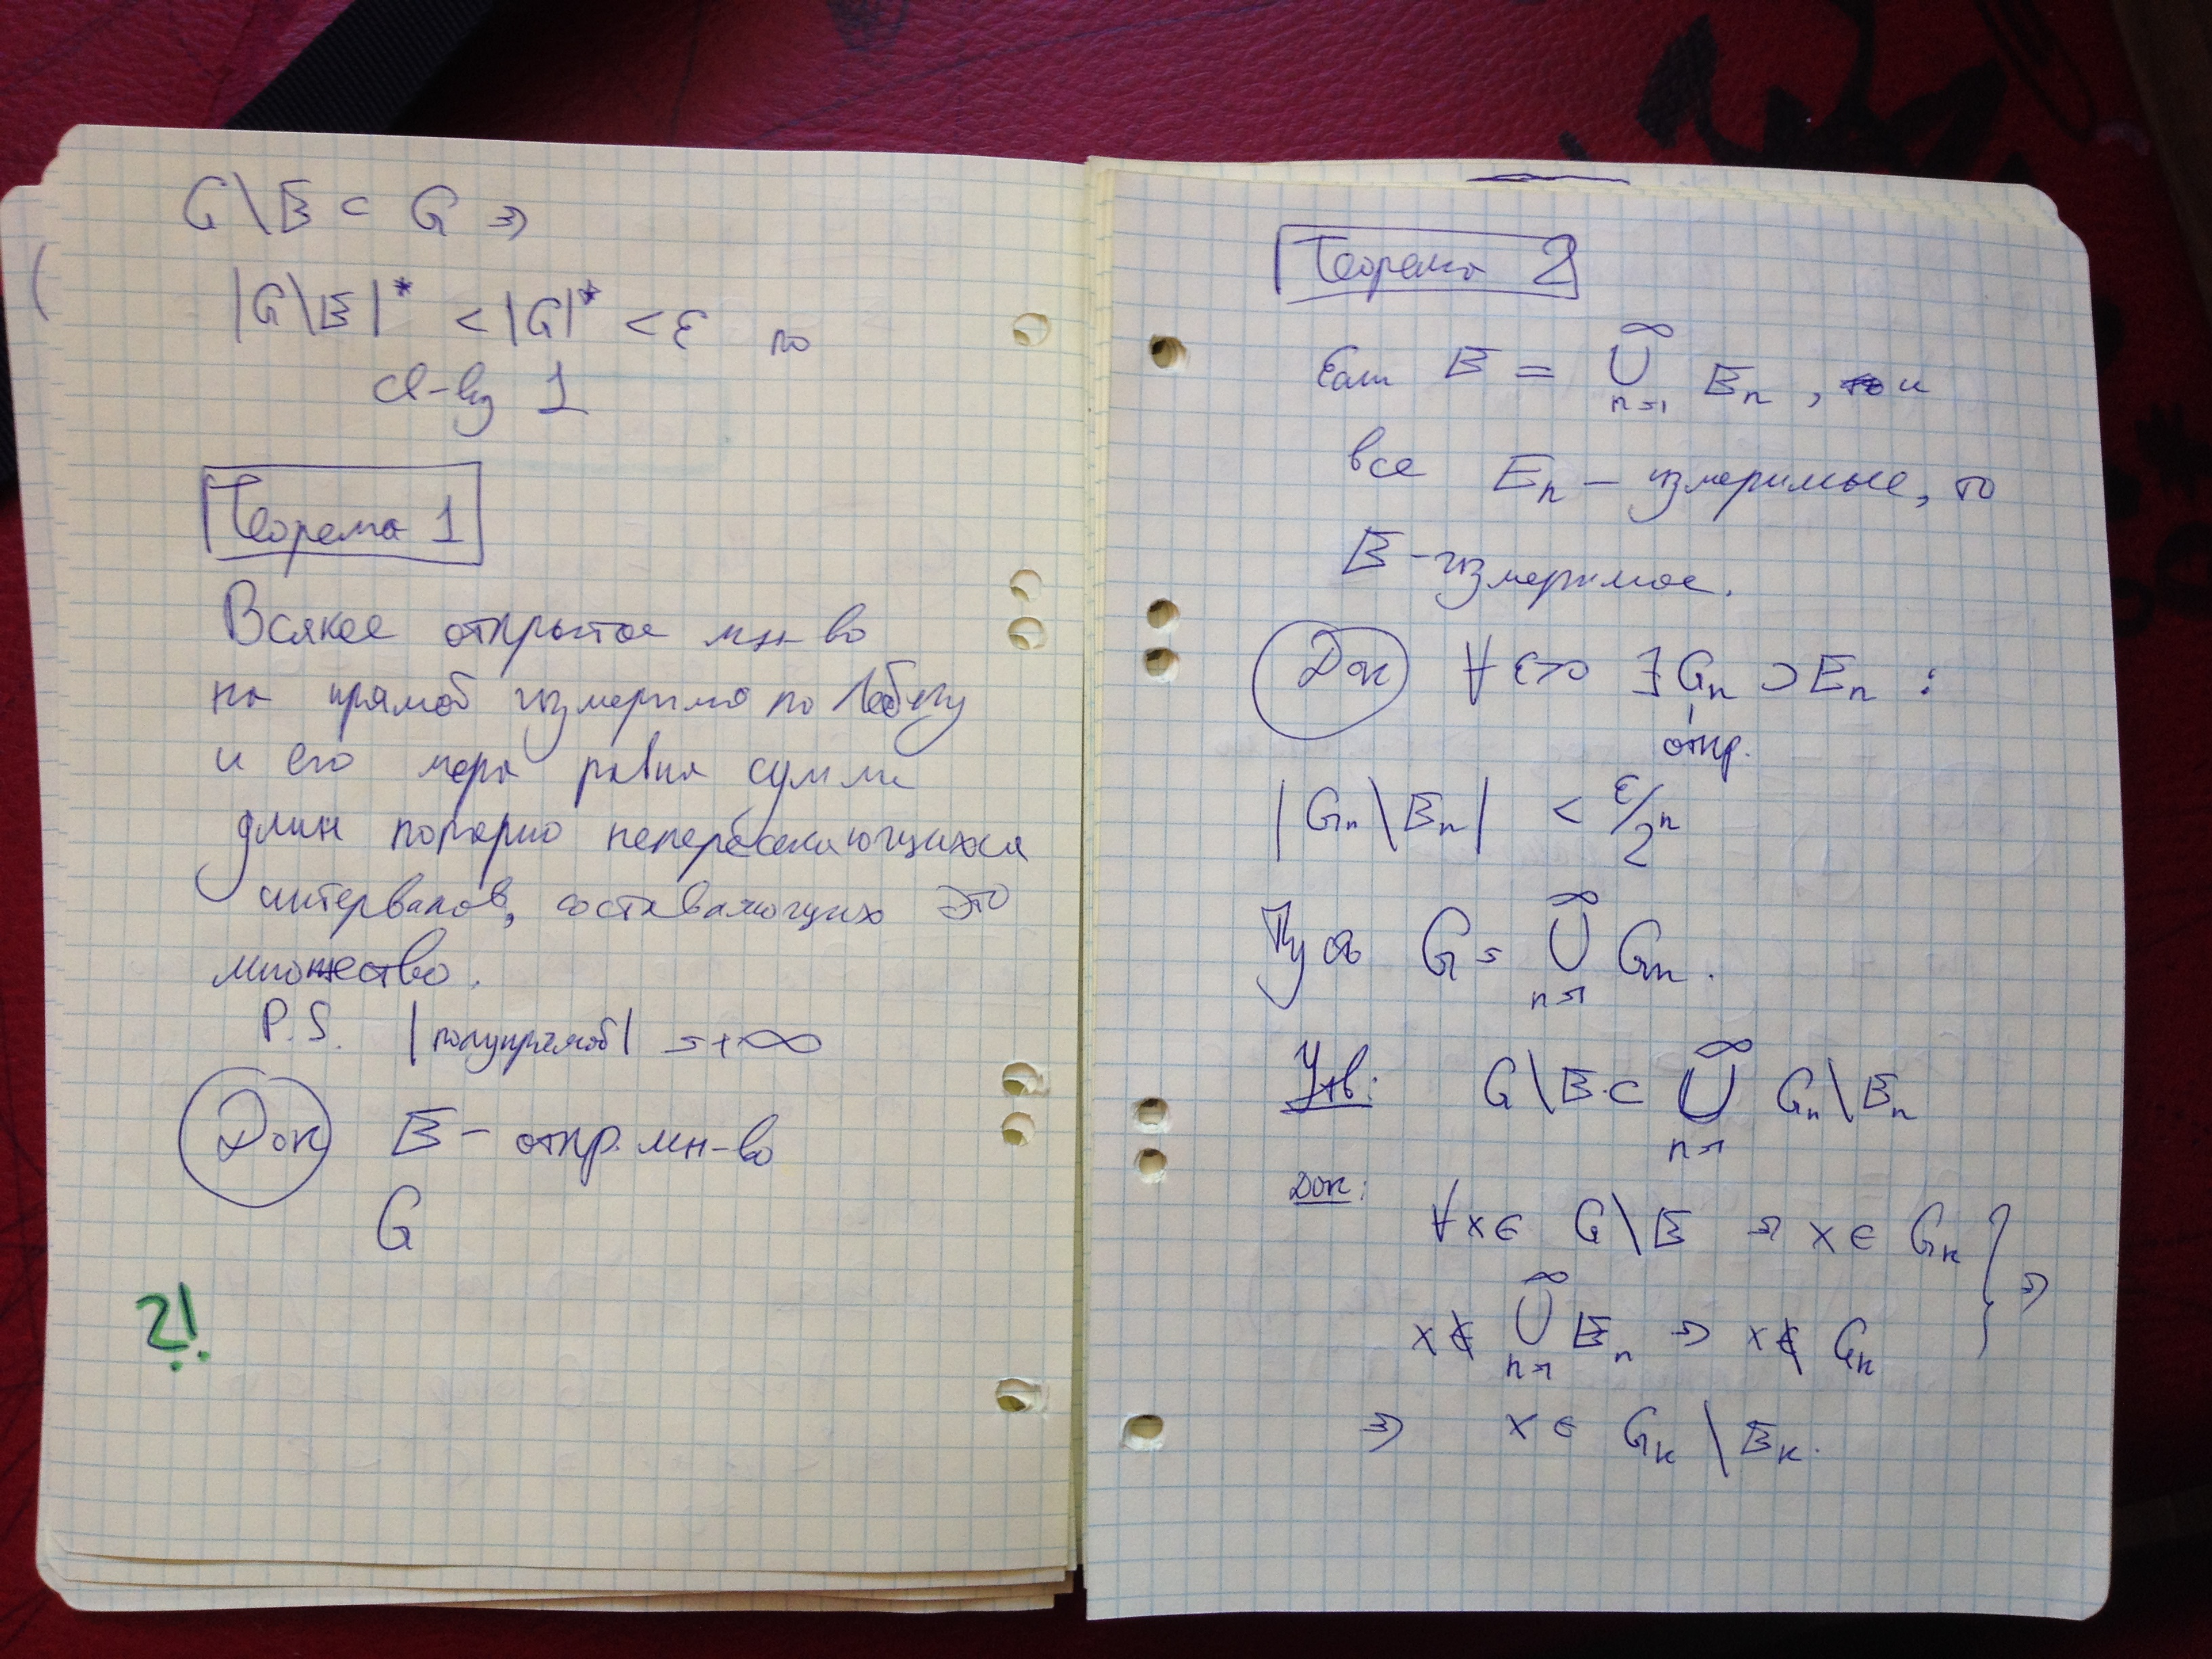 G\E ⊂ G ⇒
|G\E|* < |G|* < ε по
св-ву 1
Теорема 1
Всякое открытое мн-во
на прямой измеримо по Лебегу
и его мера равна сумме
длин попарно непересекающихся
интервалов, составляющих это
множество.
P.S. |полупрямой| = +∞
Док E - откр. мн-во
G
?!
Теорема 2
Если E = ∞⋃n=1 En, и
все En - измеримые, то
E - измеримое.
Док ∀ ε>0 ∃ Gn ⊃ En :
откр.
|Gn\En| < ε/2ⁿ
Пусть G = ∞⋃n=1 Gn.
Утв: G\E ⊂ ∞⋃n=1 Gn\En
Док:
∀x ∈ G\E ⇒ x ∈ Gk } ⇒
x ∉ ∞⋃n=1 En ⇒ x ∉ Gk
⇒ x ∈ Gk \ Ek.